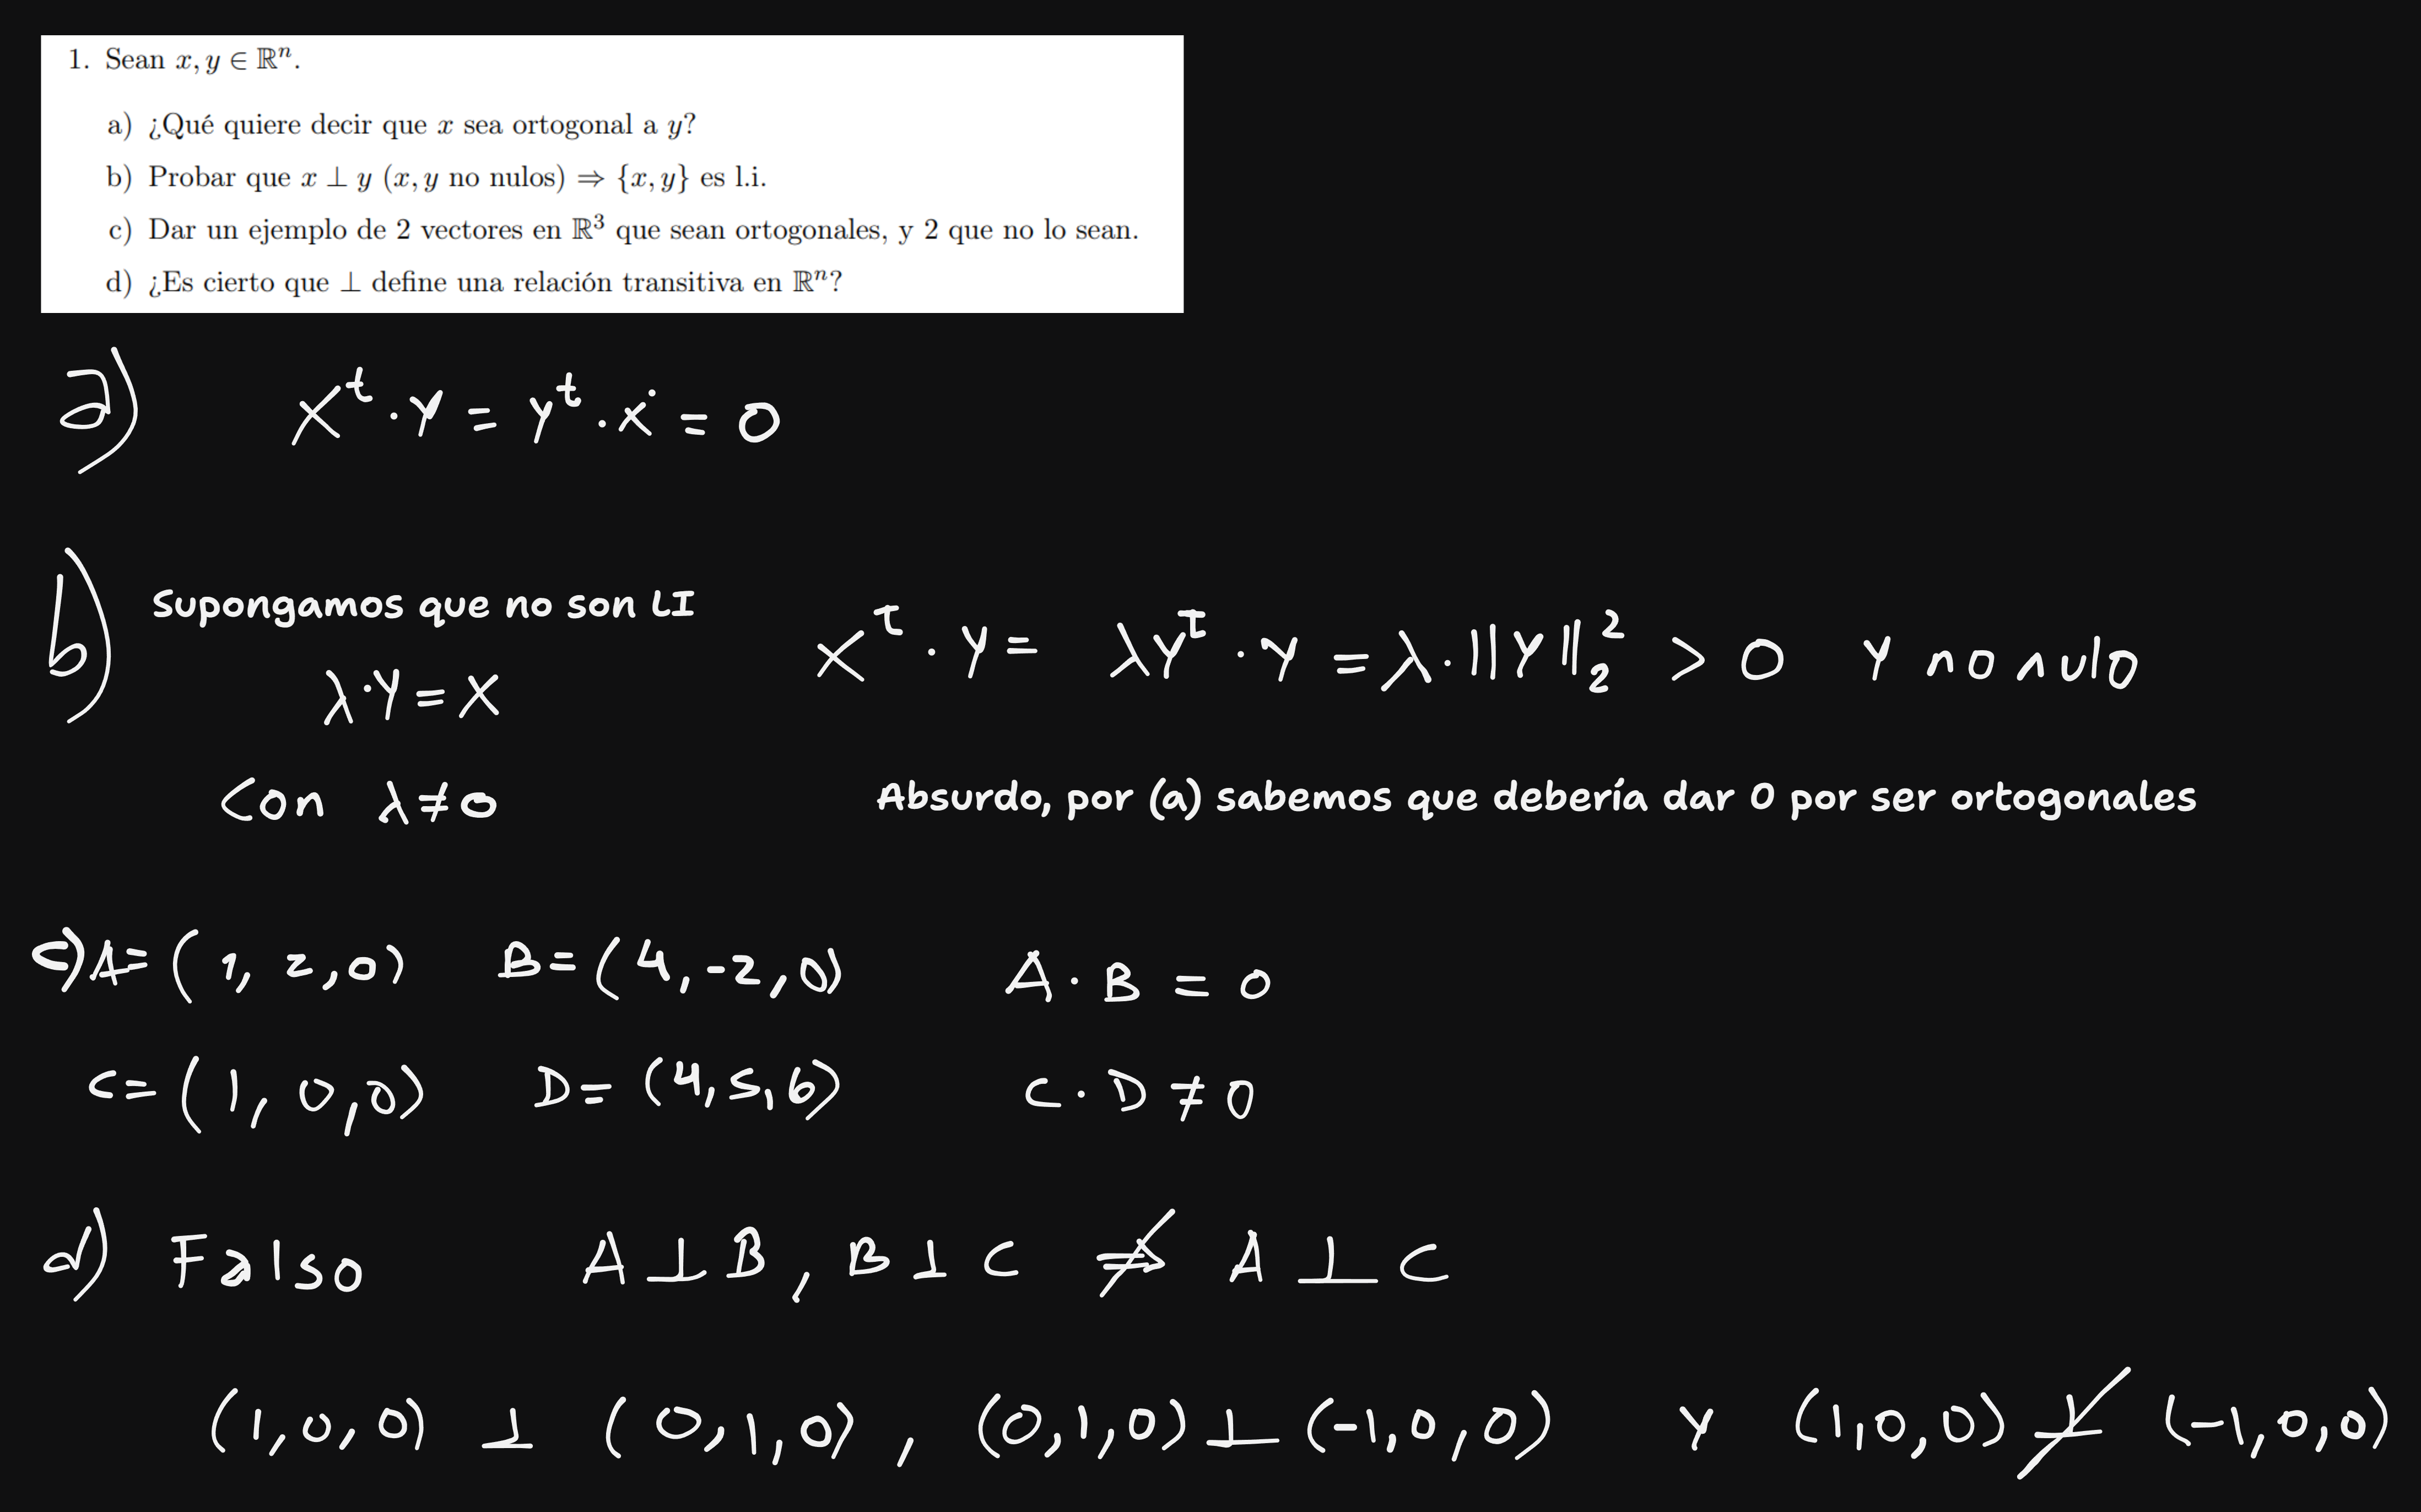 1. Sean x, y ∈ ℝⁿ.
a) ¿Qué quiere decir que x sea ortogonal a y?
b) Probar que x ⊥ y (x, y no nulos) ⇒ {x, y} es l.i.
c) Dar un ejemplo de 2 vectores en ℝ³ que sean ortogonales, y 2 que no lo sean.
d) ¿Es cierto que ⊥ define una relación transitiva en ℝⁿ?
a) xᵗ · y = yᵗ · x = 0
b) Supongamos que no son LI
λ·y = x
con λ ≠ 0
xᵀ · y = λyᵀ · y = λ · ||y||₂² > 0 y no nulo
Absurdo, por (a) sabemos que debería dar 0 por ser ortogonales
c) A = (1, 2, 0) B = (4, -2, 0) A · B = 0
C = (1, 0, 0) D = (4, 5, 6) C · D ≠ 0
d) Falso A ⊥ B, B ⊥ C ⇏ A ⊥ C
(1, 0, 0) ⊥ (0, 1, 0), (0, 1, 0) ⊥ (-1, 0, 0) y (1, 0, 0) ⊥̸ (-1, 0, 0)